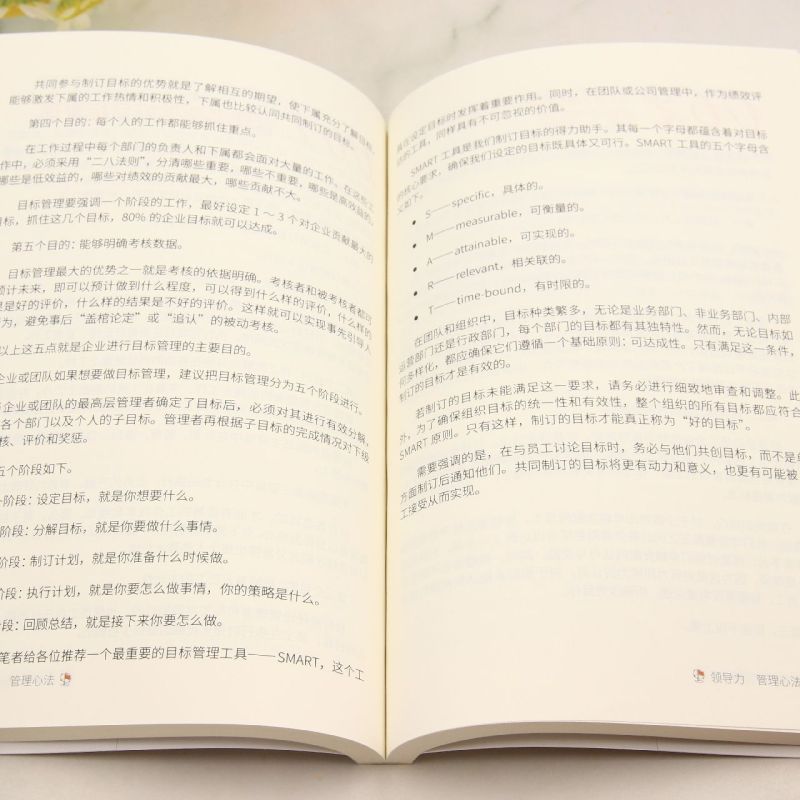 共同参与制订目标的优势就是了解相互的期望，使下属充分了解目标，
能够激发下属的工作热情和积极性，下属也比较认同共同制订的目标。
第四个目的：每个人的工作都能够抓住重点。
在工作过程中每个部门的负责人和下属都会面对大量的工作。在这些工
作中，必须采用“二八法则”，分清哪些重要，哪些不重要，哪些是高效益的，
哪些是低效益的，哪些对绩效的贡献最大，哪些贡献不大。
目标管理要强调一个阶段的工作，最好设定 1～3 个对企业贡献最大的
目标，抓住这几个目标，80% 的企业目标就可以达成。
第五个目的：能够明确考核数据。
目标管理最大的优势之一就是考核的依据明确。考核者和被考核者都可
预计未来，即可以预计做到什么程度，可以得到什么样的评价，什么样的
是好的评价，什么样的结果是不好的评价。这样就可以实现事先引导人
为，避免事后“盖棺论定”或“追认”的被动考核。
以上这五点就是企业进行目标管理的主要目的。
企业或团队如果想要做目标管理，建议把目标管理分为五个阶段进行。
企业或团队的最高层管理者确定了目标后，必须对其进行有效分解，
各个部门以及个人的子目标。管理者再根据子目标的完成情况对下级
核、评价和奖惩。
五个阶段如下。
阶段：设定目标，就是你想要什么。
阶段：分解目标，就是你要做什么事情。
阶段：制订计划，就是你准备什么时候做。
阶段：执行计划，就是你要怎么做事情，你的策略是什么。
段：回顾总结，就是接下来你要怎么做。
笔者给各位推荐一个最重要的目标管理工具——SMART，这个工
管理心法
具在设定目标时发挥着重要作用。同时，在团队或公司管理中，作为绩效评
的工具，同样具有不可忽视的价值。
SMART 工具是我们制订目标的得力助手。其每一个字母都蕴含着对目标
的核心要求，确保我们设定的目标既具体又可行。SMART 工具的五个字母含
义如下。
• S——specific，具体的。
• M——measurable，可衡量的。
• A——attainable，可实现的。
• R——relevant，相关联的。
• T——time-bound，有时限的。
在团队和组织中，目标种类繁多，无论是业务部门、非业务部门、内部
运营部门还是行政部门，每个部门的目标都有其独特性。然而，无论目标如
何多样化，都应确保它们遵循一个基础原则：可达成性。只有满足这一条件，
制订的目标才是有效的。
若制订的目标未能满足这一要求，请务必进行细致地审查和调整。此
外，为了确保组织目标的统一性和有效性，整个组织的所有目标都应符合
SMART 原则。只有这样，制订的目标才能真正称为“好的目标”。
需要强调的是，在与员工讨论目标时，务必与他们共创目标，而不是单
方面制订后通知他们。共同制订的目标将更有动力和意义，也更有可能被
工接受从而实现。
领导力 管理心法